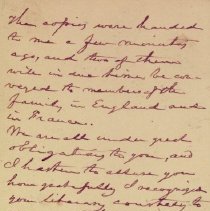 The copies were handed
to me a few minutes
ago, and two of them
will in due time, be con-
veyed to members of the
family in England and
in France.
We are all under great
obligations to you, and
I hasten to assure you
how gratefully I recognize
your literary courtesy to